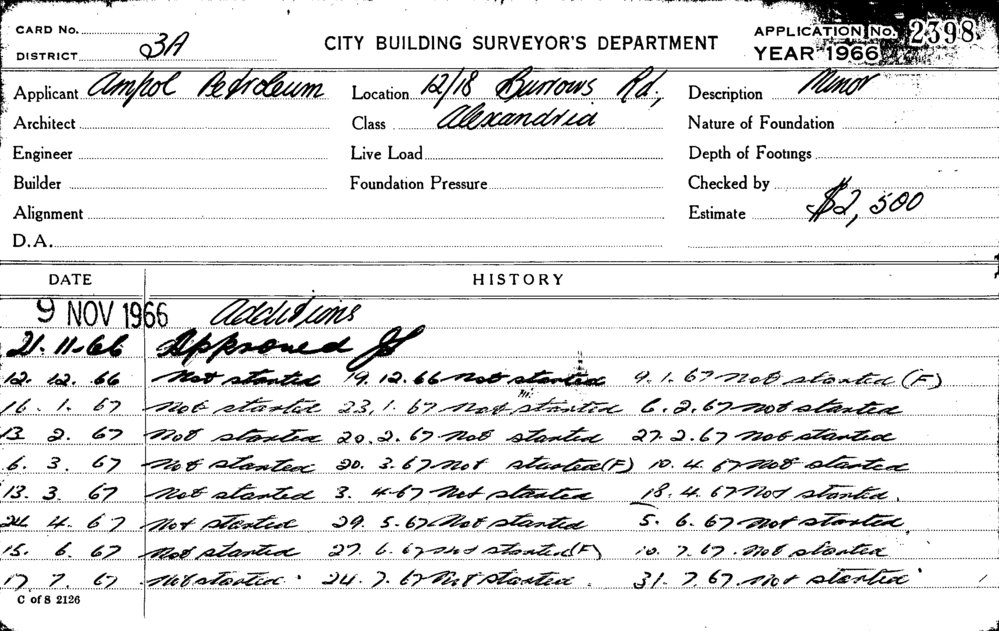 CARD No.
DISTRICT 3A
CITY BUILDING SURVEYOR'S DEPARTMENT
APPLICATION No. 2398
YEAR 1966
Applicant Ampol Petroleum Location 12/18 Burrows Rd., Description Minor
Architect Class Alexandria Nature of Foundation
Engineer Live Load Depth of Footings
Builder Foundation Pressure Checked by
Alignment Estimate $2,500
D.A.
DATE HISTORY
9 NOV 1966 Additions
21.11.66 Approved
12.12.66 Not started 19.12.66 Not started 9.1.67 Not started (F)
16.1.67 Not started 23.1.67 Not started 6.2.67 Not started
13 2. 67 Not started 20.2.67 Not started 27.2.67 Not started
6. 3. 67 Not started 20. 3.67 Not started (F) 10.4.67 Not started
13. 3. 67 Not started 3. 4-67 Not started 18.4.67 Not started.
24 4. 67 Not started 29. 5.67 Not started 5. 6. 67 Not started
15. 6. 67 Not started 27. 6. 67 Not started (F) 10. 7.67. Not started
17 7. 67 Not started. 24.7.67 Not started. 31. 7.67. Not started
C of S 2126